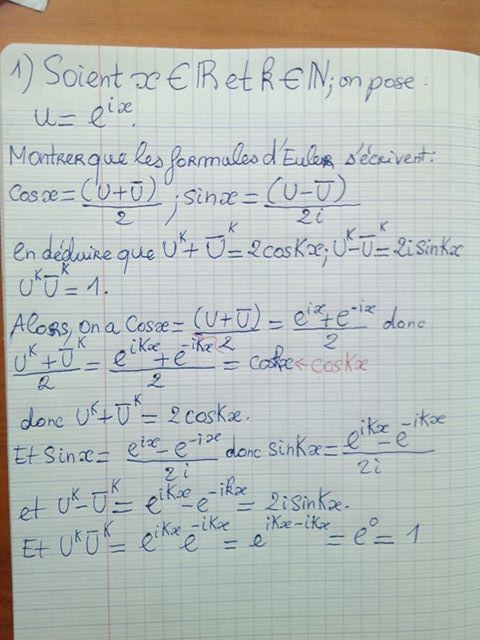 1) Soient x ∈ ℝ et k ∈ ℕ; on pose :
u = e^{ix}.
Montrer que les formules d'Euler s'écrivent:
Cosx = (U+Ū)/2 ; sinx = (U-Ū)/2i
en déduire que U^K + Ū^K = 2cosKx; U^K - Ū^K = 2isinKx
U^K Ū^K = 1.
Alors, on a Cosx = (U+Ū)/2 = (e^{ix} + e^{-ix})/2 donc
(U^K + Ū^K)/2 = (e^{iKx} + e^{-iKx})/2 = cosKx ← cosKx
donc U^K + Ū^K = 2cosKx.
Et Sinx = (e^{ix} - e^{-ix})/2i donc sinKx = (e^{iKx} - e^{-iKx})/2i
et U^K - Ū^K = e^{iKx} - e^{-iKx} = 2isinKx.
Et U^K Ū^K = e^{iKx} e^{-iKx} = e^{iKx-iKx} = e^0 = 1